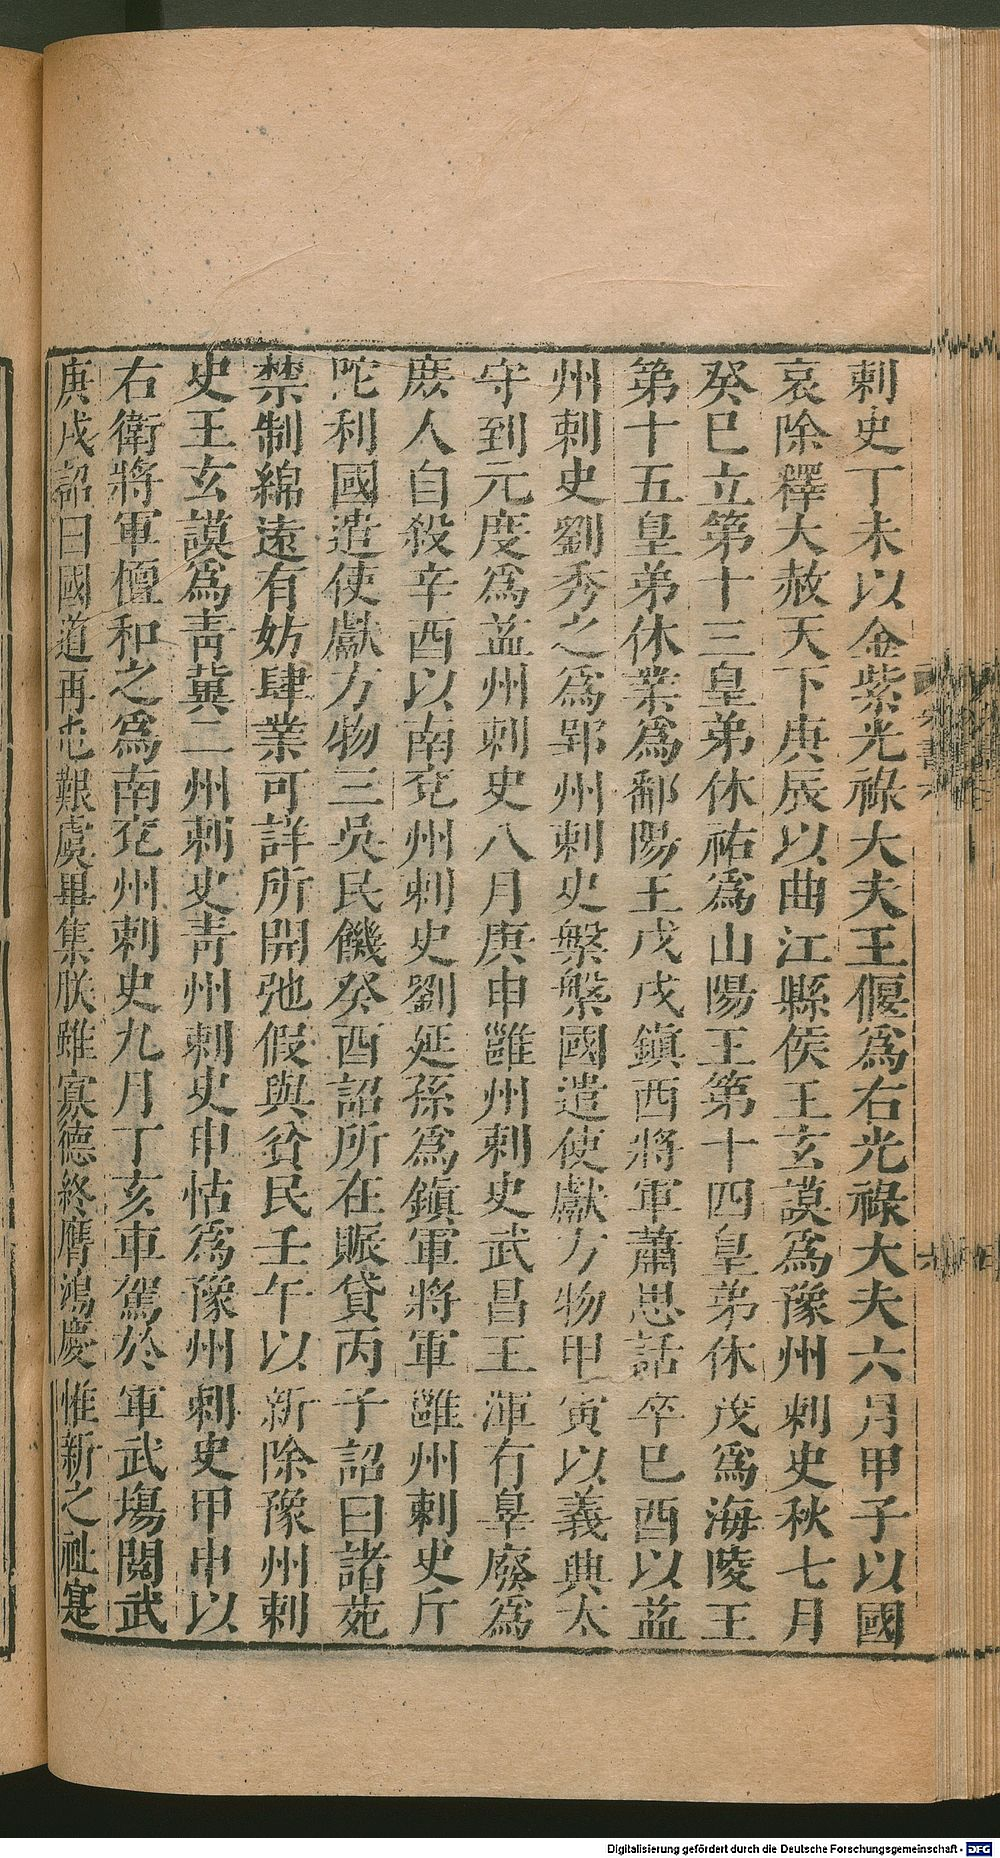 刺史丁未以金紫光祿大夫王偃爲右光祿大夫六月甲子以國
哀除釋大赦天下庚辰以曲江縣侯王玄謨爲豫州刺史秋七月
癸巳立第十三皇弟休祐爲山陽王第十四皇弟休茂爲海陵王
第十五皇弟休業爲鄱陽王戊戌鎮西將軍蕭思話卒巳酉以益
州刺史劉秀之爲郢州刺史槃槃國遣使獻方物甲寅以義興太
守到元度爲益州刺史八月庚申雝州刺史武昌王渾有辠廢爲
庶人自殺辛酉以南兖州刺史劉延孫爲鎭軍將軍雝州刺史斤
陀利國遣使獻方物三吳民饑癸酉詔所在賑貸丙子詔曰諸苑
禁制綿遠有妨肆業可詳所開弛假與貧民壬午以新除豫州刺
史王玄謨爲青冀二州刺史青州刺史申恬爲豫州刺史甲申以
右衛將軍檀和之爲南兖州刺史九月丁亥車駕於軍武場閱武
庚戌詔曰國道再屯艱虞畢集朕雖寡德終膺鴻慶惟新之祉寔
宋書六
六
Digitalisierung gefördert durch die Deutsche Forschungsgemeinschaft - DFG